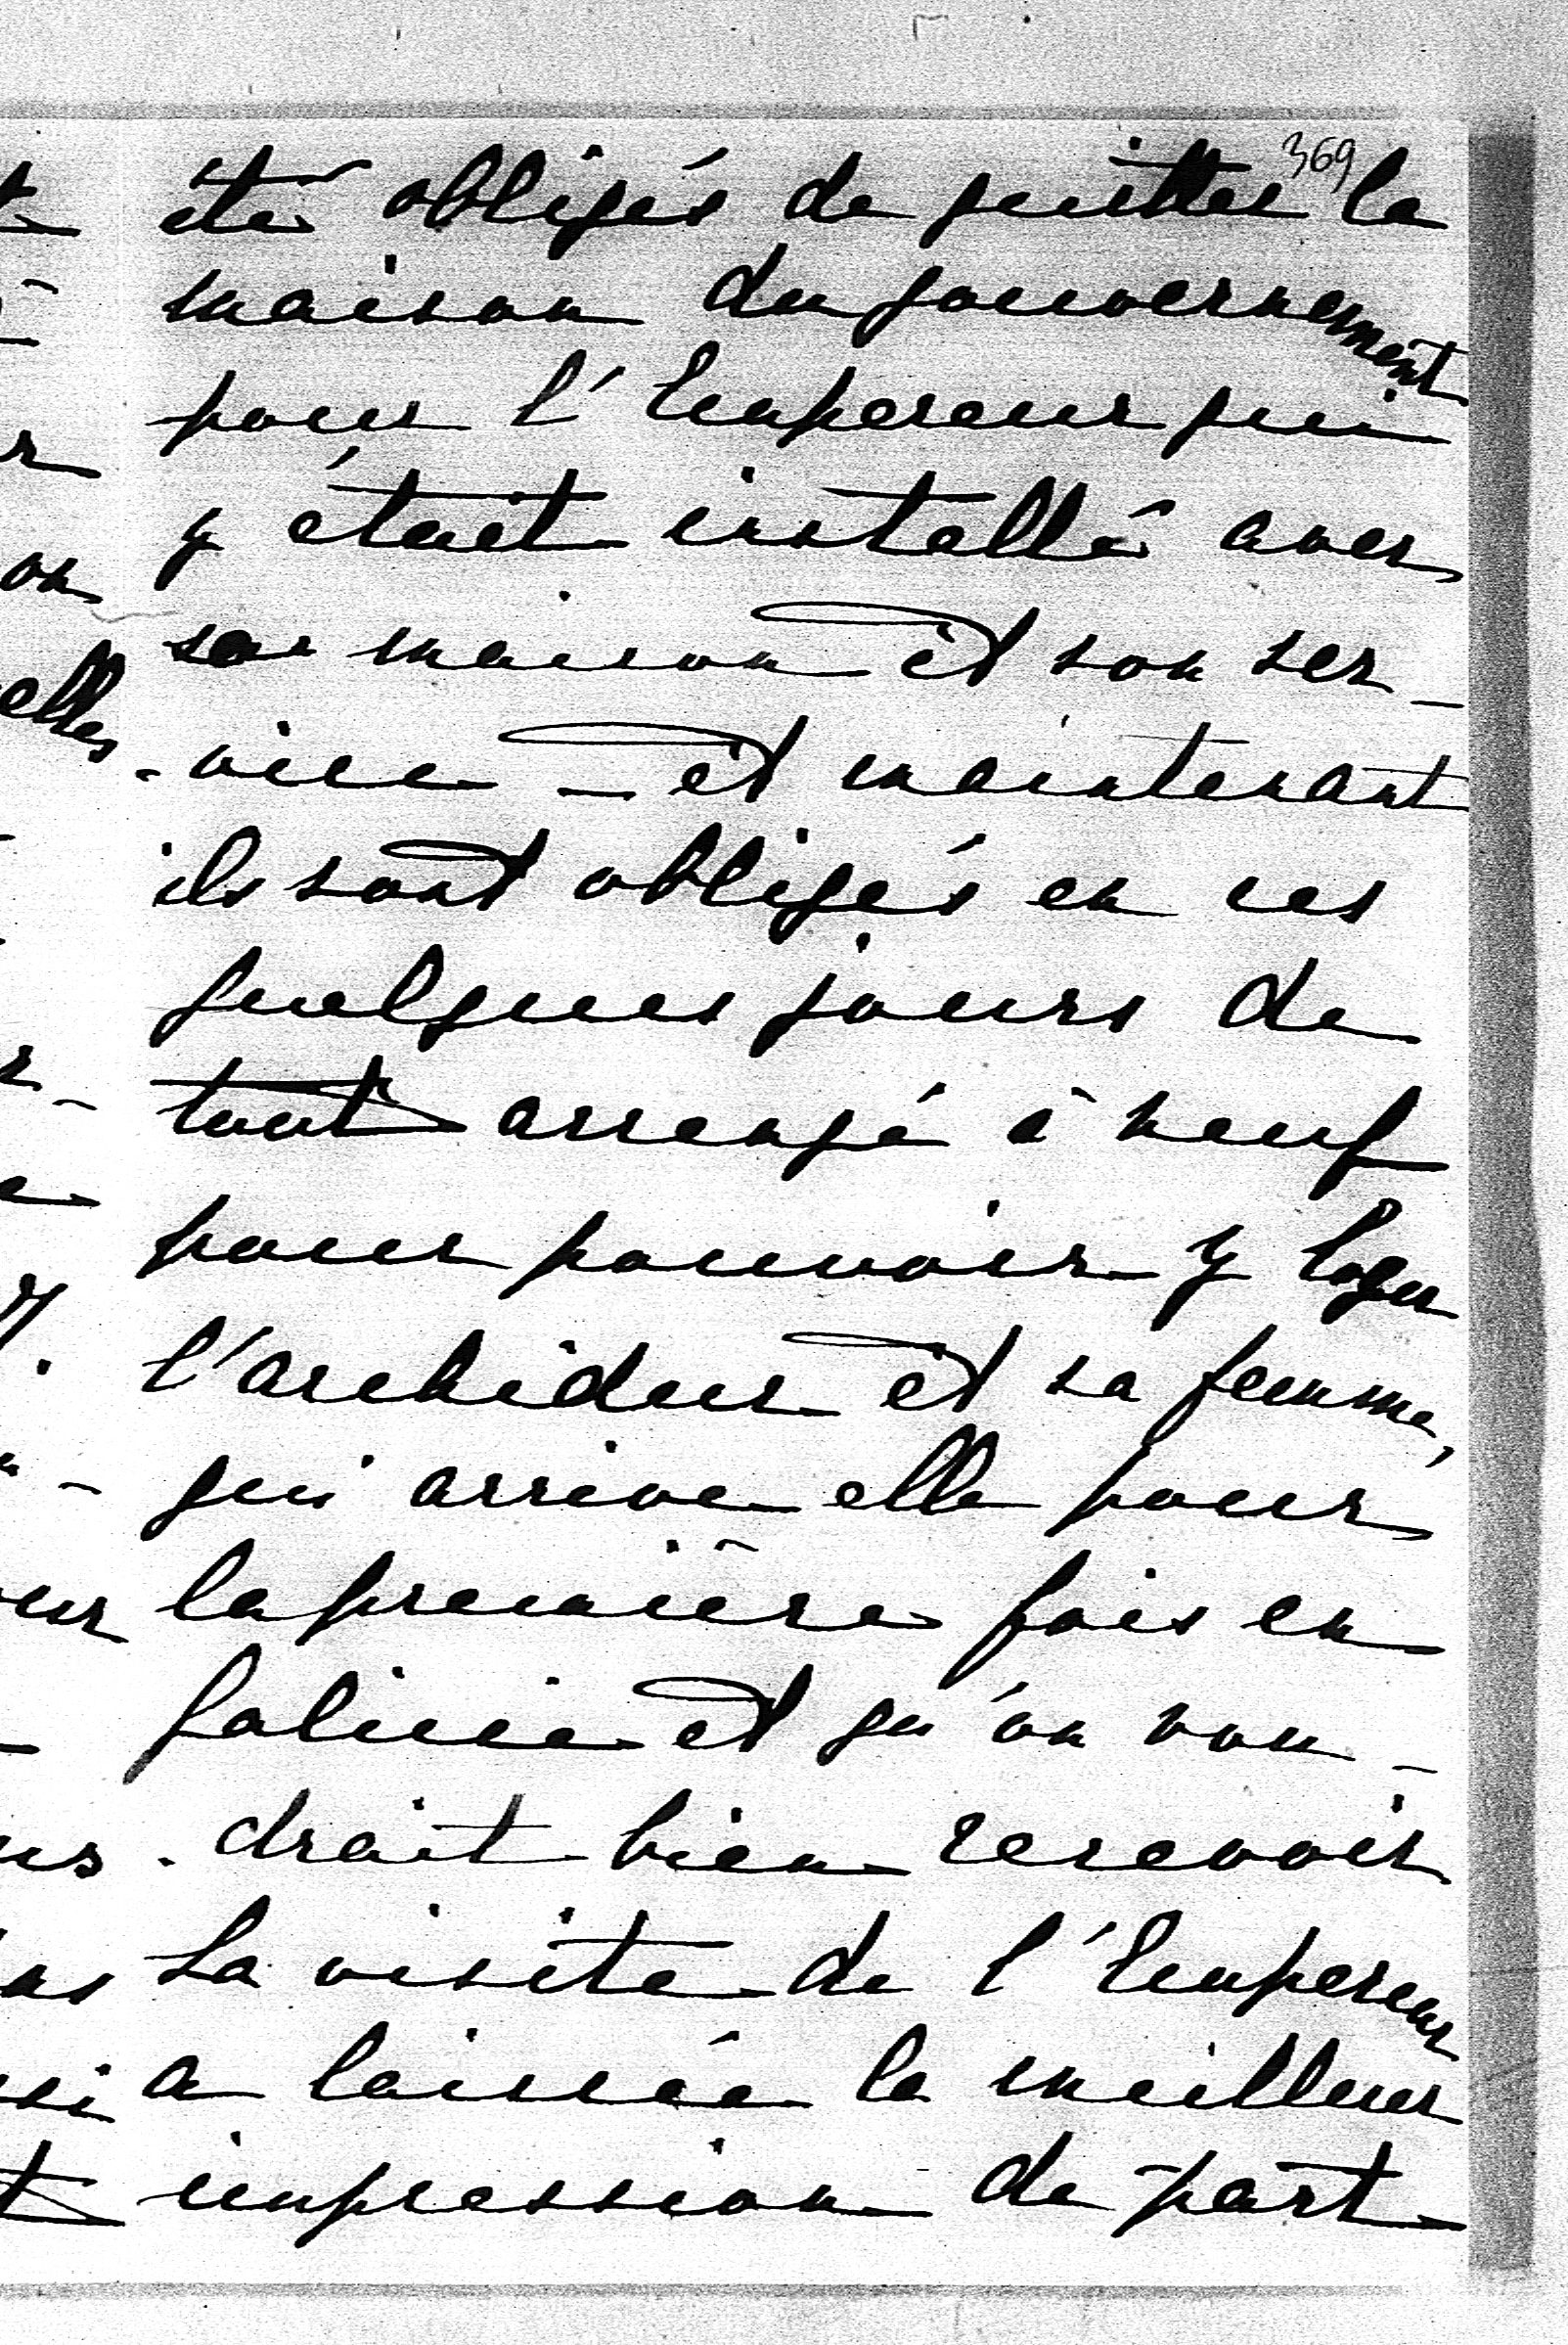 369
été obligés de quitter la
maison du gouvernement
pour l'Empereur qui
y était installé avec
sa maison et son ser-
-vice - et maintenant
ils sont obligés en ces
quelques jours de
tout arrangé à neuf
pour pouvoir y loger
l'archiduc et sa femme,
qui arrive elle pour
la première fois en
Galicie et qu'on vou-
drait bien recevoir
La visite de l'Empereur
a laissée la meilleur
impression de part